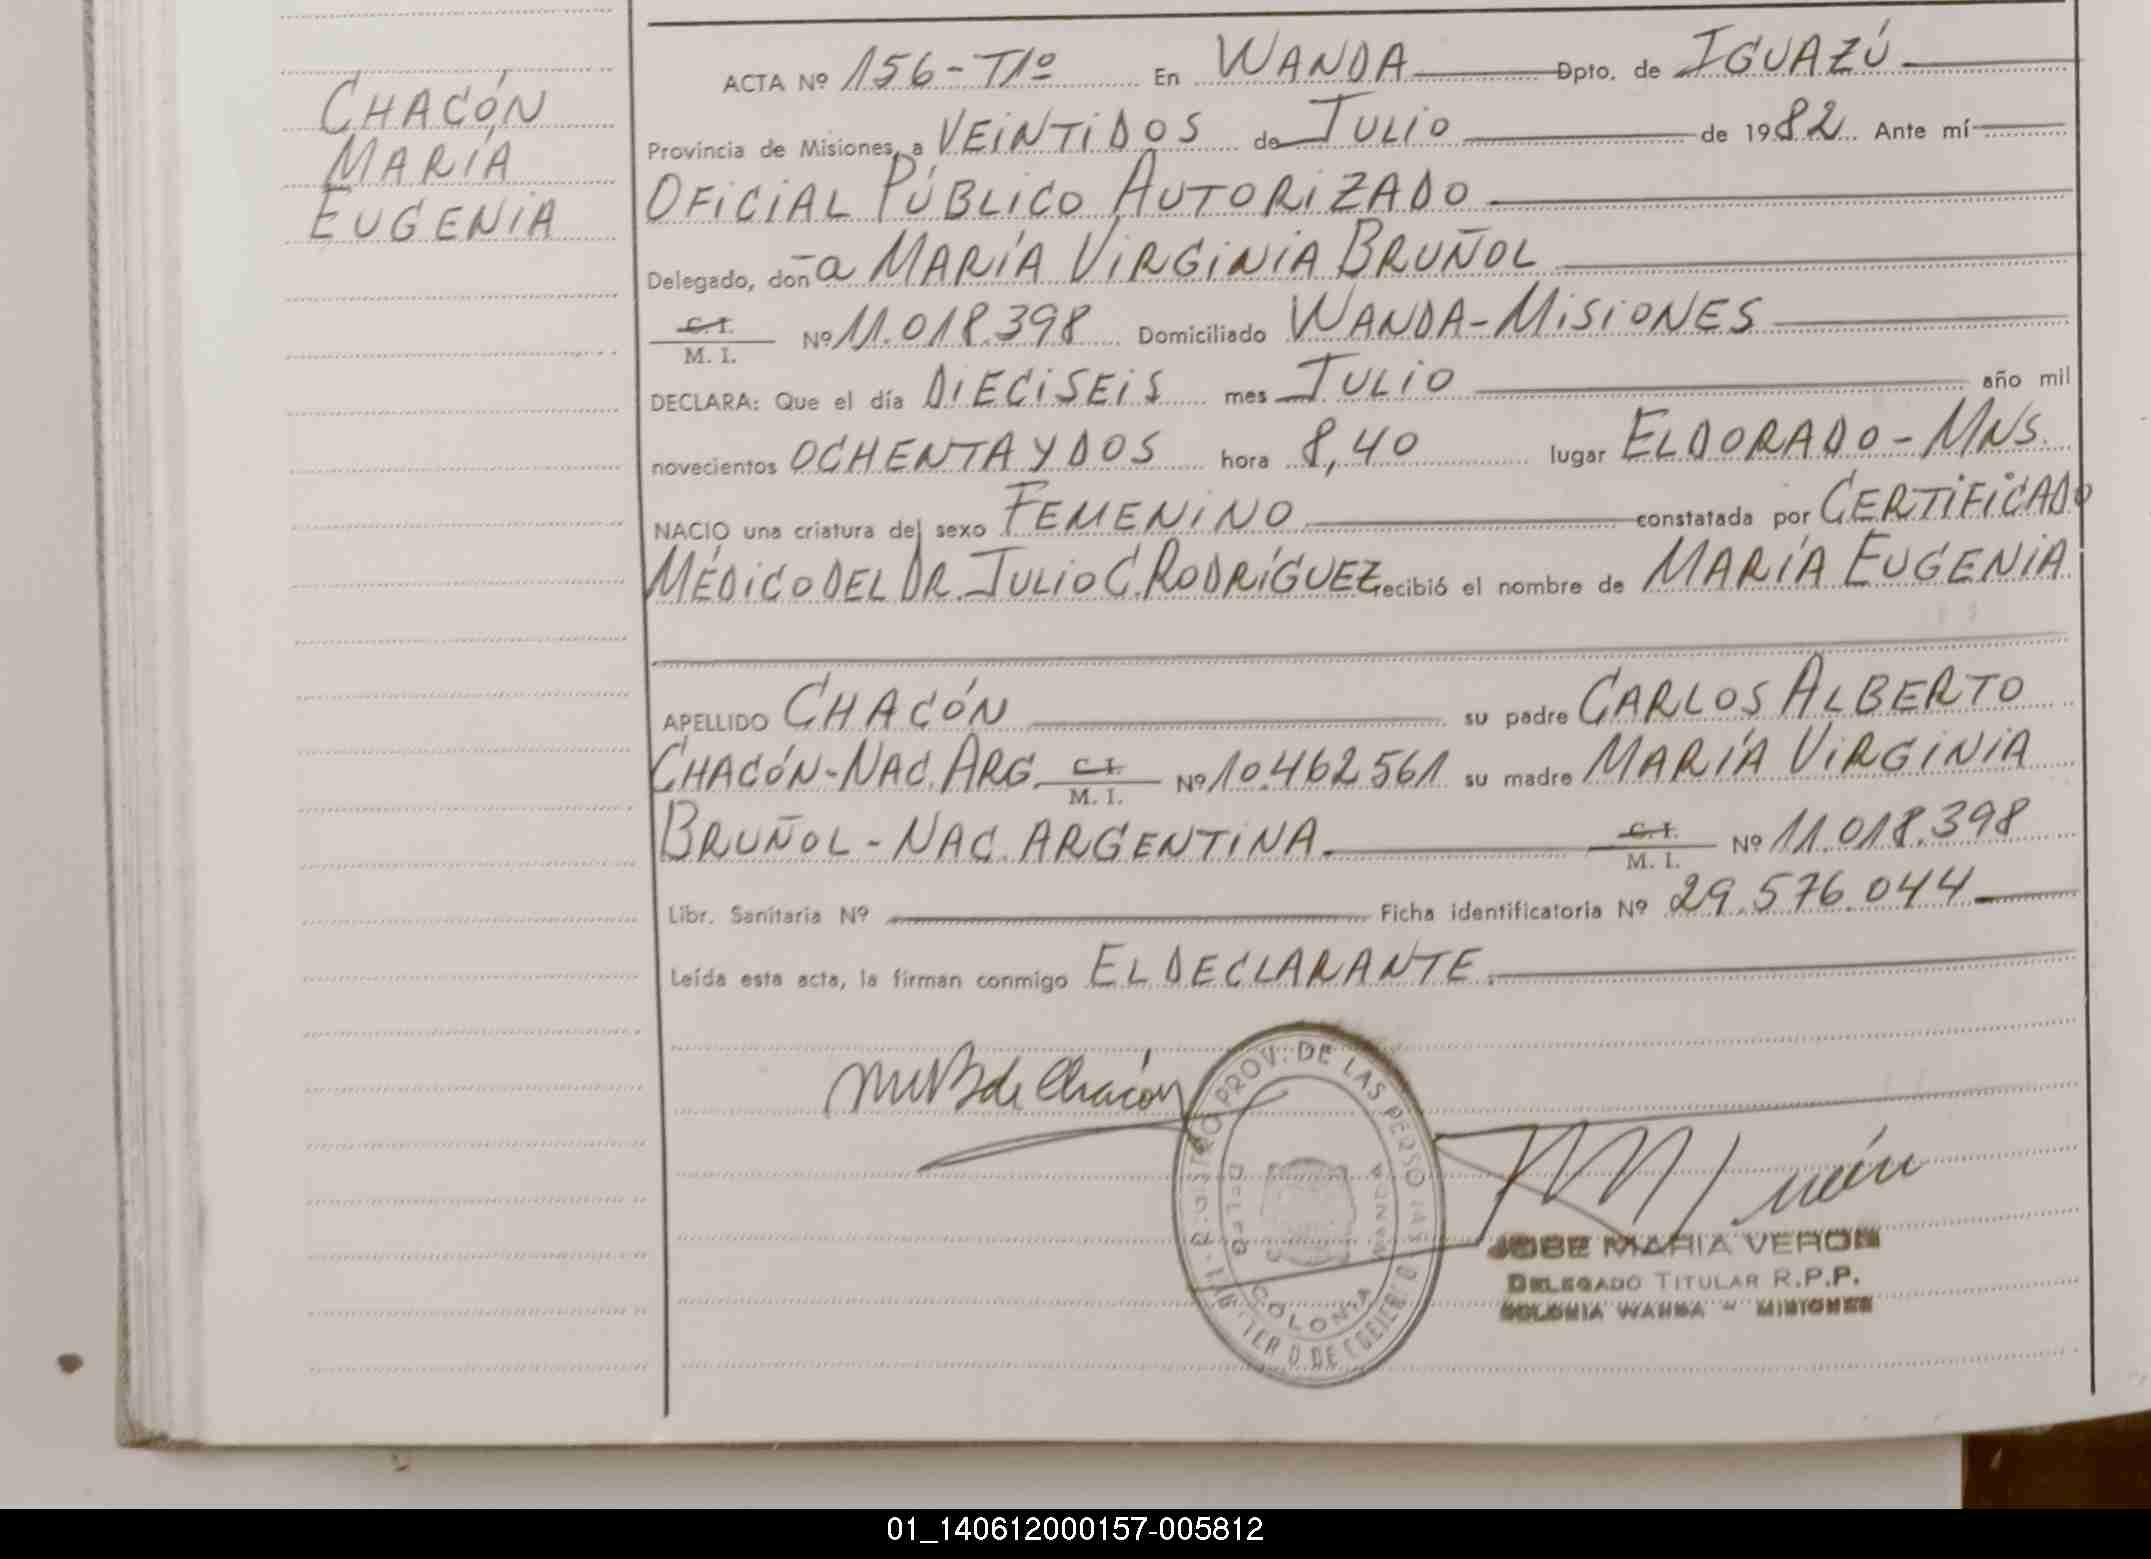 CHACÓN
MARÍA
EUGENIA
ACTA Nº 156-T1º En WANDA Dpto. de IGUAZÚ
Provincia de Misiones, a VEINTIDOS de JULIO de 1982. Ante mí
OFICIAL PÚBLICO AUTORIZADO
Delegado, doña MARÍA VIRGINIA BRUÑOL
C. I. / M. I. Nº 11.018.398 Domiciliado WANDA-MISIONES
DECLARA: Que el día DIECISEIS mes JULIO año mil
novecientos OCHENTA Y DOS hora 8,40 lugar ELDORADO-MNS.
NACIO una criatura del sexo FEMENINO constatada por CERTIFICADO
MÉDICO DEL DR. JULIO C. RODRÍGUEZ recibió el nombre de MARÍA EUGENIA
APELLIDO CHACÓN su padre CARLOS ALBERTO
CHACÓN-NAC. ARG. C. I. / M. I. Nº 10.462561 su madre MARÍA VIRGINIA
BRUÑOL-NAC. ARGENTINA. C. I. / M. I. Nº 11.018.398
Libr. Sanitaria Nº Ficha identificatoria Nº 29.576.044
Leída esta acta, la firman conmigo EL DECLARANTE.
de Chacón
PROV. DE LAS PERSO
DELEG
WANDA
COLONIA
JOSE MARIA VERON
DELEGADO TITULAR R.P.P.
COLONIA WANDA - MISIONES
01_140612000157-005812